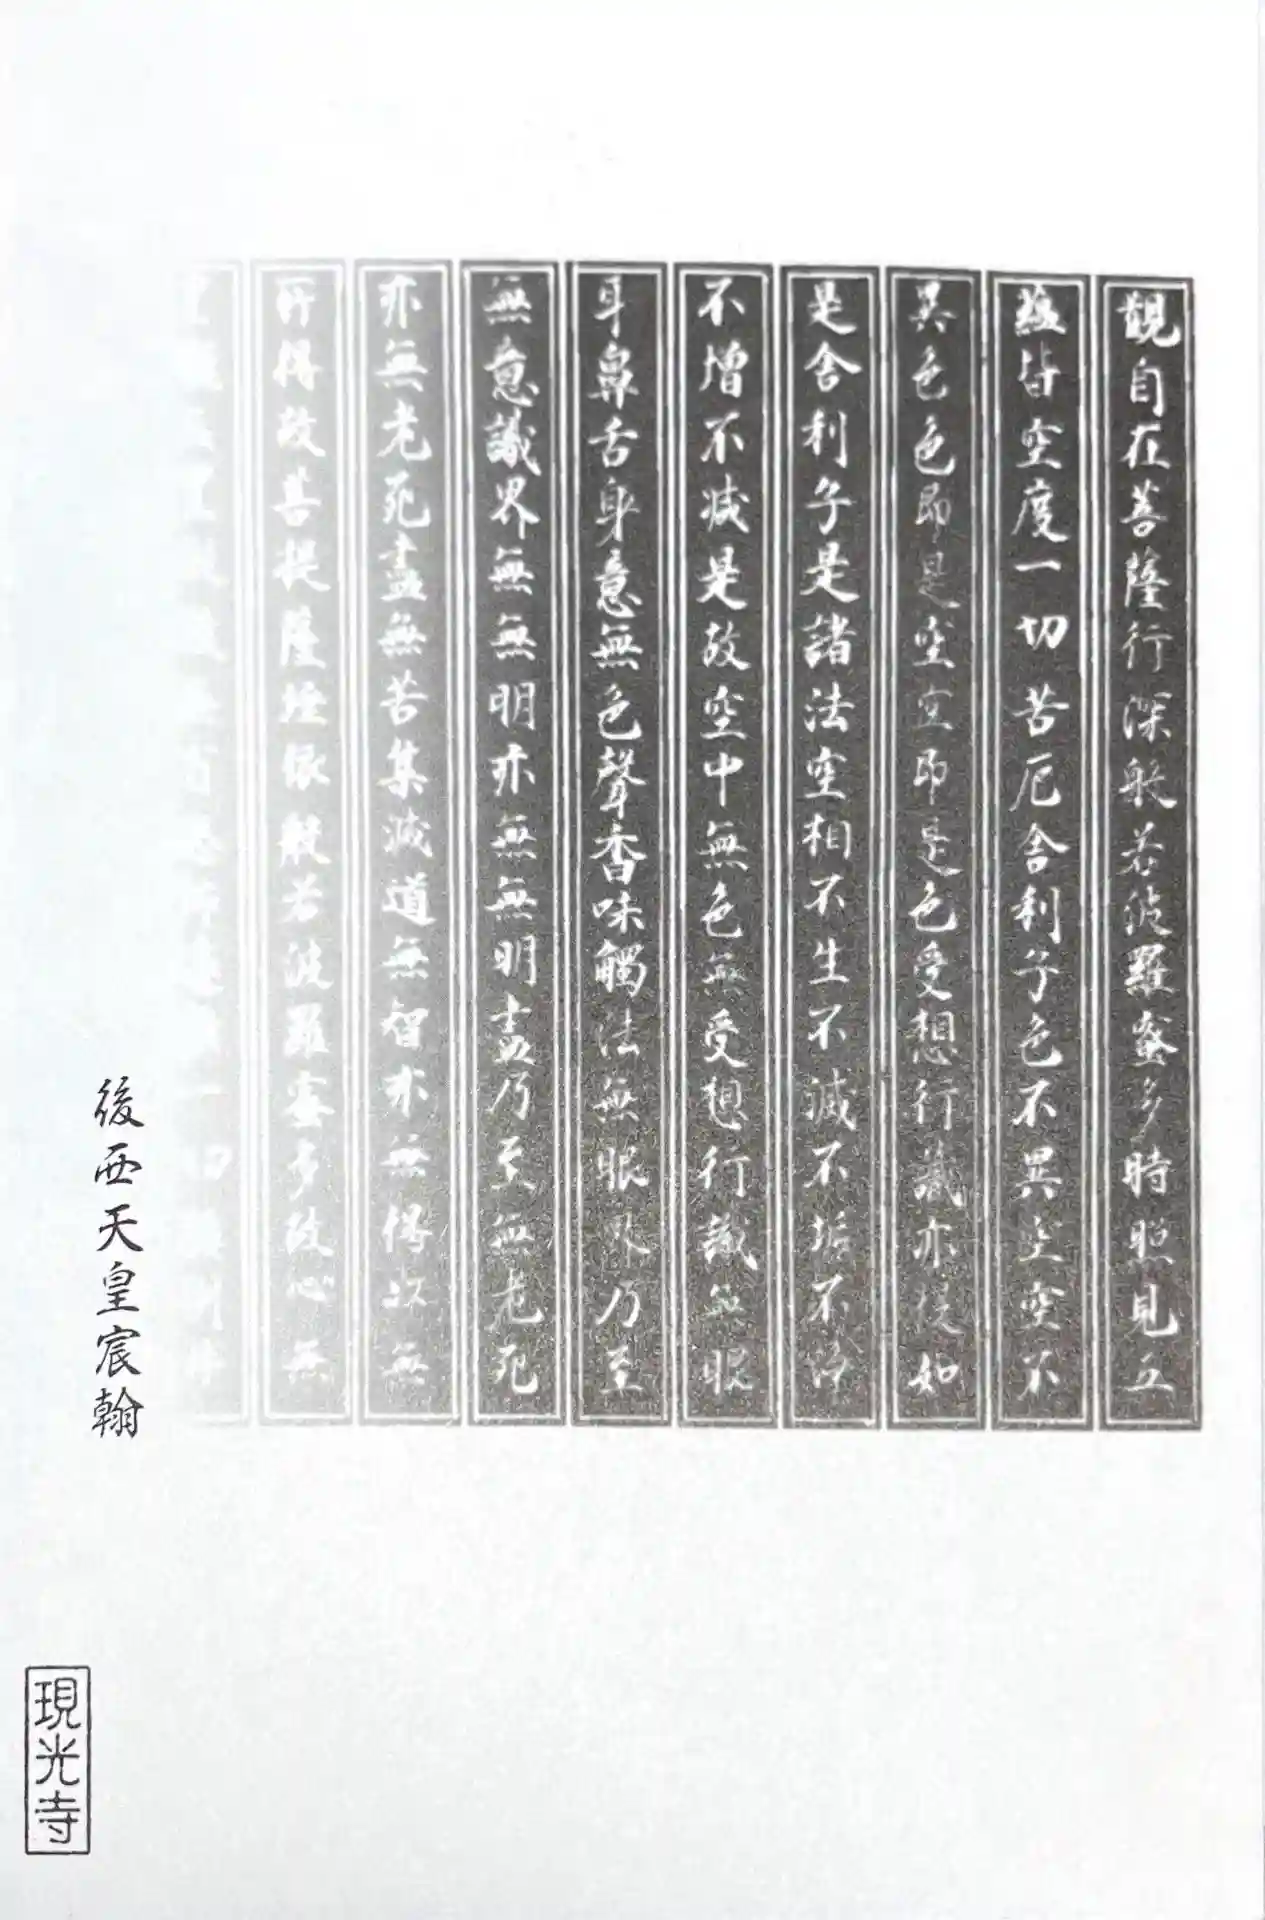 観自在菩薩行深般若波羅蜜多時照見五
蘊皆空度一切苦厄舎利子色不異空空不
異色色即是空空即是色受想行識亦復如
是舎利子是諸法空相不生不滅不垢不浄
不増不減是故空中無色無受想行識無眼
耳鼻舌身意無色聲香味觸法無眼界乃至
無意識界無無明亦無無明盡乃至無老死
亦無老死盡無苦集滅道無智亦無得以無
所得故菩提薩埵依般若波羅蜜多故心無
後西天皇宸翰
現光寺